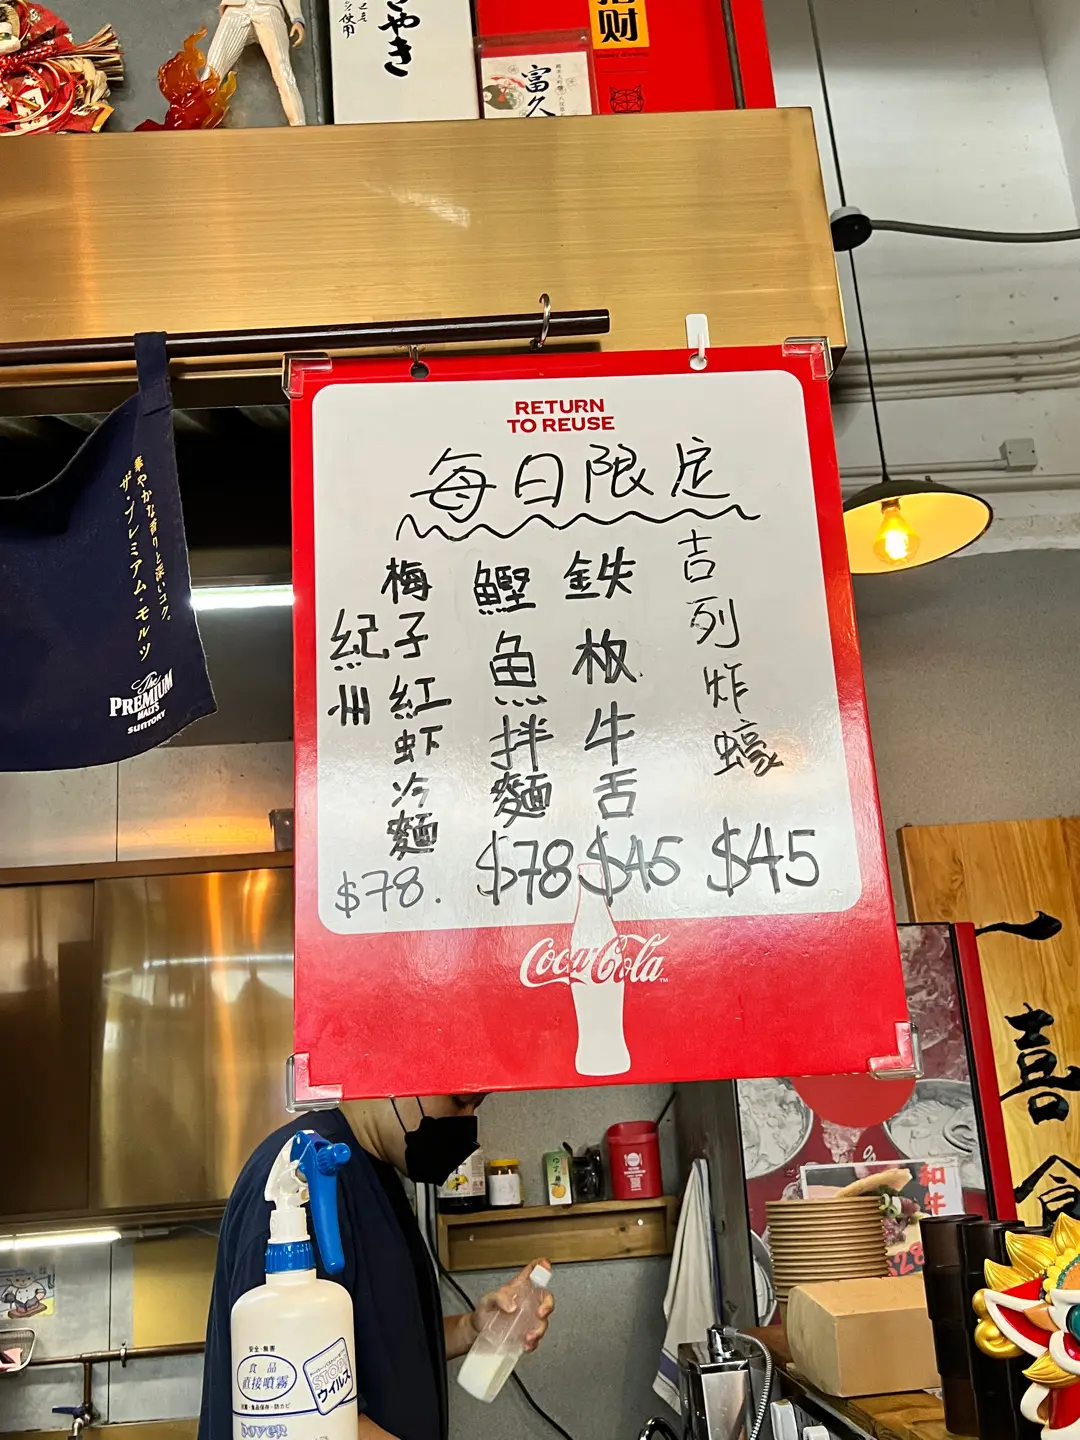 さやき
富久
招财
華やかな香りと深いコク。
ザ・プレミアム・モルツ
The
PREMIUM
MALT'S
SUNTORY
RETURN
TO REUSE
每日限定
吉列炸蠔
$45
鉄板牛舌
$45
鰹魚拌麵
$78
紀州
梅子紅虾冷麵
$78.
Coca-Cola
一喜
和牛
安全・無害
食品
直接噴霧
STOP!
ウイルス